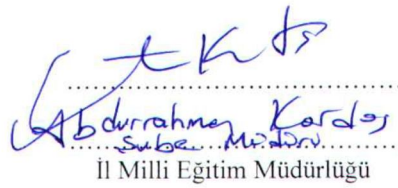 Abdurrahman Kardaş
Şube Müdürü
İl Milli Eğitim Müdürlüğü